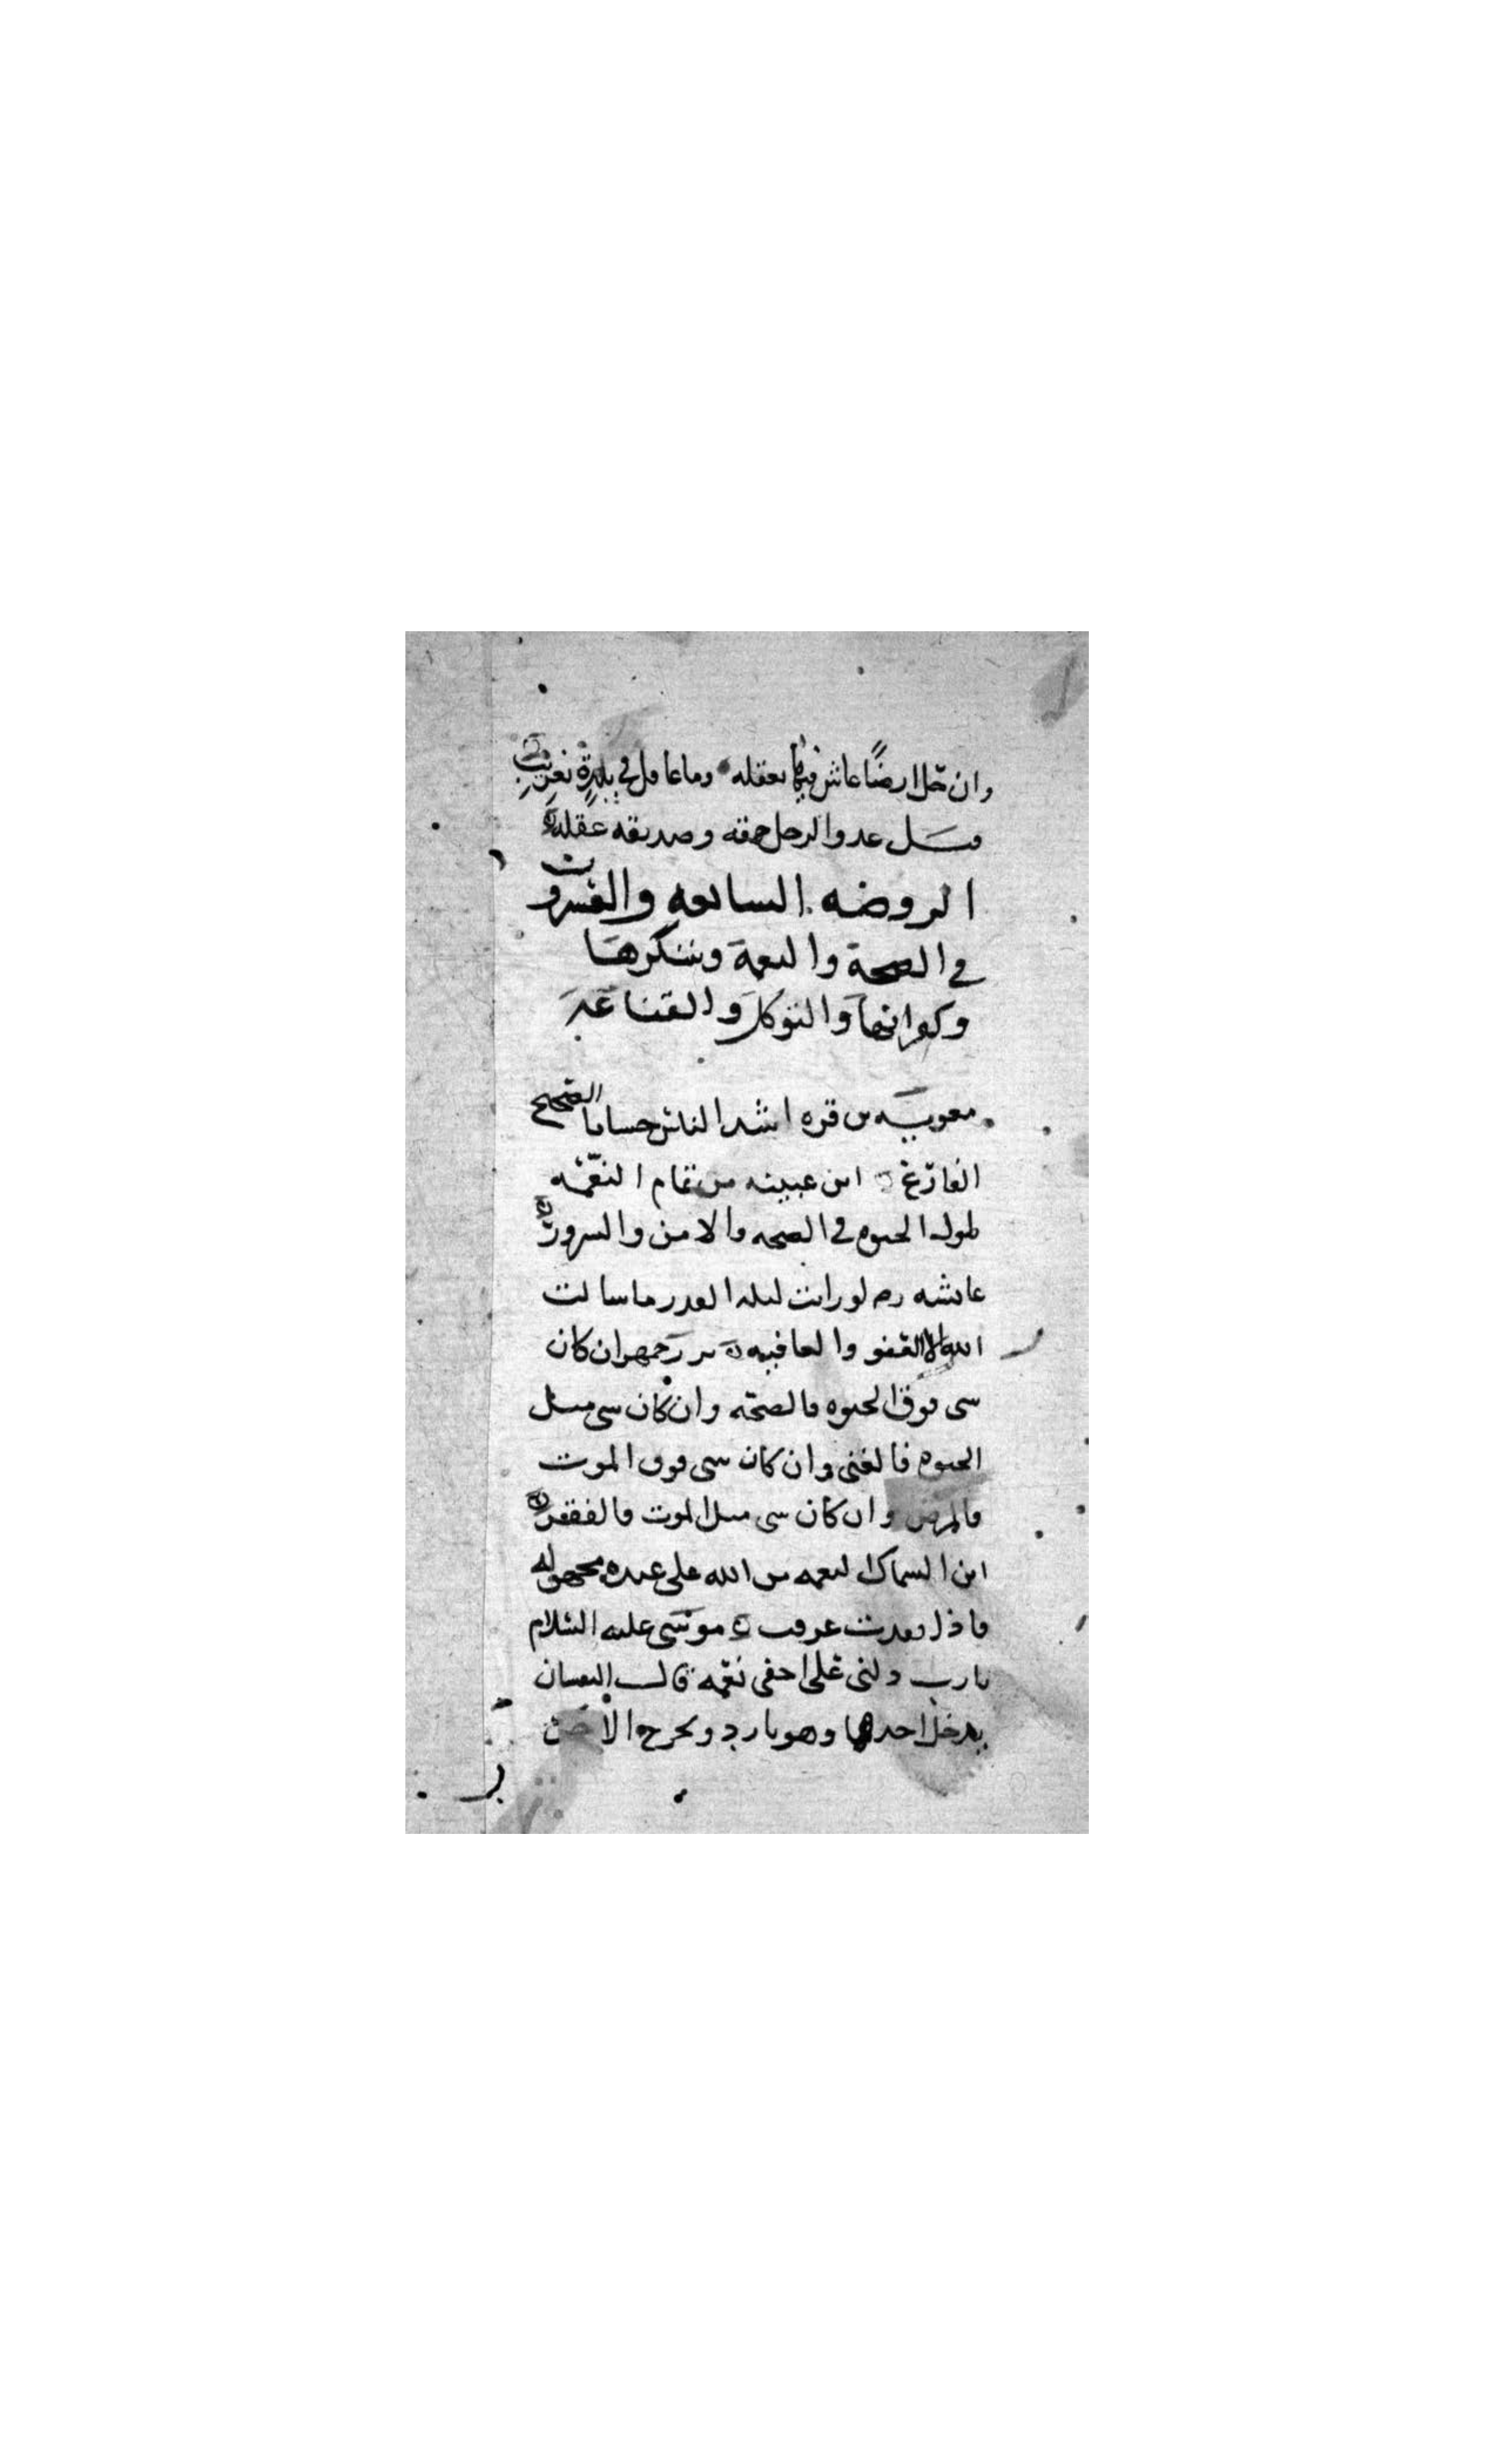 وان حل ارضًا عاش فيها بعقله وما عاقل في بلدةٍ بغريبِ
وقيل عدو الرجل حمقه وصديقه عقله
الروضه السابعه والعشرون
في الصحة والنعمة وشكرها
وكفرانها والتوكل والقناعة
معويه بن قره اشد الناس حسابا الصحيح
الفارغ ابن عيينه من تمام النعمه
طول الحيوه في الصحه والامن والسرور
عائشه رضى لو رايت ليله القدر ما سالت
الله الا العفو والعافيه بزرجمهر ان كان
شى فوق الحيوه فالصحه وان كان شى مثل
الحيوه فالغنى وان كان شى فوق الموت
فالمرض وان كان شى مثل الموت فالفقر
ابن السماك النعمه من الله على عبده مجهوله
فاذا فقدت عرفت موسى عليه السلام
يارب دلنى على اخفى نعمه قال النفسان
يدخل احدهما وهو بارد ويخرج الاخر